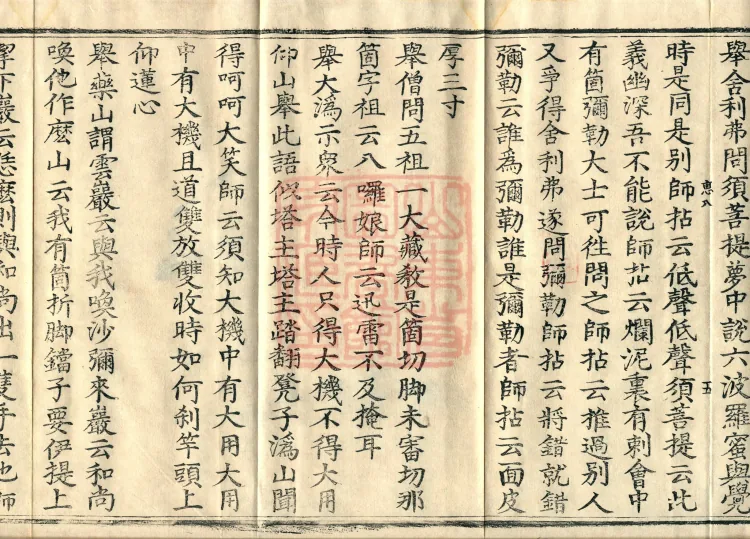 舉舍利弗問須菩提夢中說六波羅蜜與覺
時是同是別師拈云低聲低聲須菩提云此
義幽深吾不能說師拈云爛泥裏有刺會中
有箇彌勒大士可徃問之師拈云推過別人
又爭得舍利弗遂問彌勒師拈云將錯就錯
彌勒云誰為彌勒誰是彌勒者師拈云面皮
厚三寸
舉僧問五祖一大藏教是箇切脚未審切那
箇字祖云八囉娘師云迅雷不及掩耳
舉大溈示衆云今時人只得大機不得大用
仰山舉此語似塔主塔主踏翻凳子溈山聞
得呵呵大笑師云須知大機中有大用大用
中有大機且道雙放雙收時如何刹竿頭上
仰蓮心
舉藥山謂雲巖云與我喚沙彌來巖云和尚
喚他作麽山云我有箇折脚鐺子要伊提上
挈下巖云恁麽則與和尚出一隻手去也師